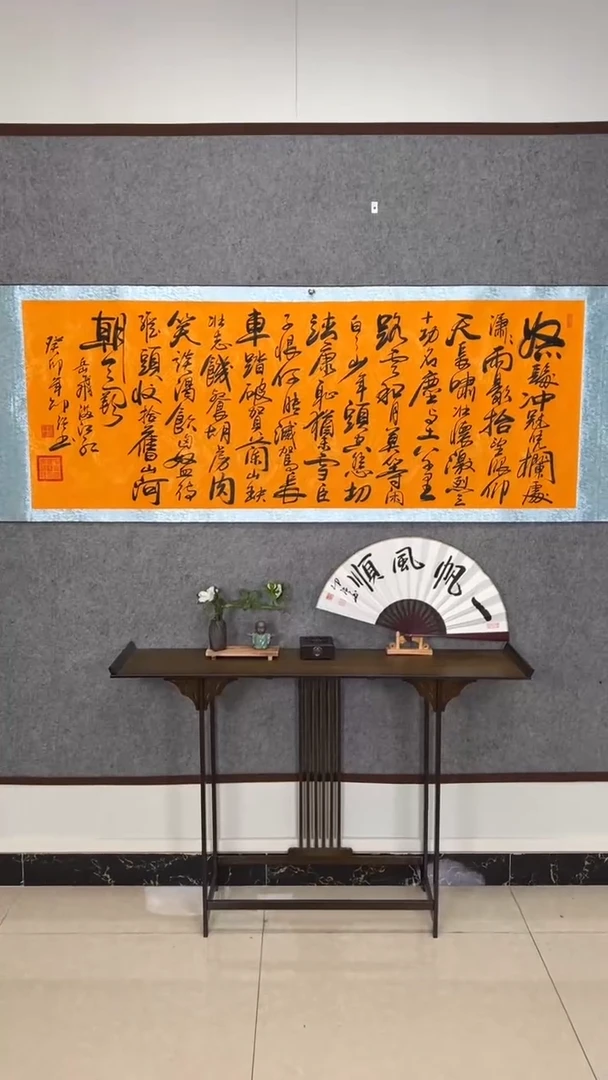 怒髮冲冠凭欄處
瀟瀟雨歇抬望眼仰
天長嘯壯懷激烈三
十功名塵与土八千里
路雲和月莫等闲
白了少年頭空悲切
靖康恥猶未雪臣
子恨何时滅駕長
車踏破賀蘭山缺
壮志饑餐胡虏肉
笑談渴飲匈奴血待
從頭收拾舊山河
朝天闕
岳飛满江红
癸卯年
一帆風順